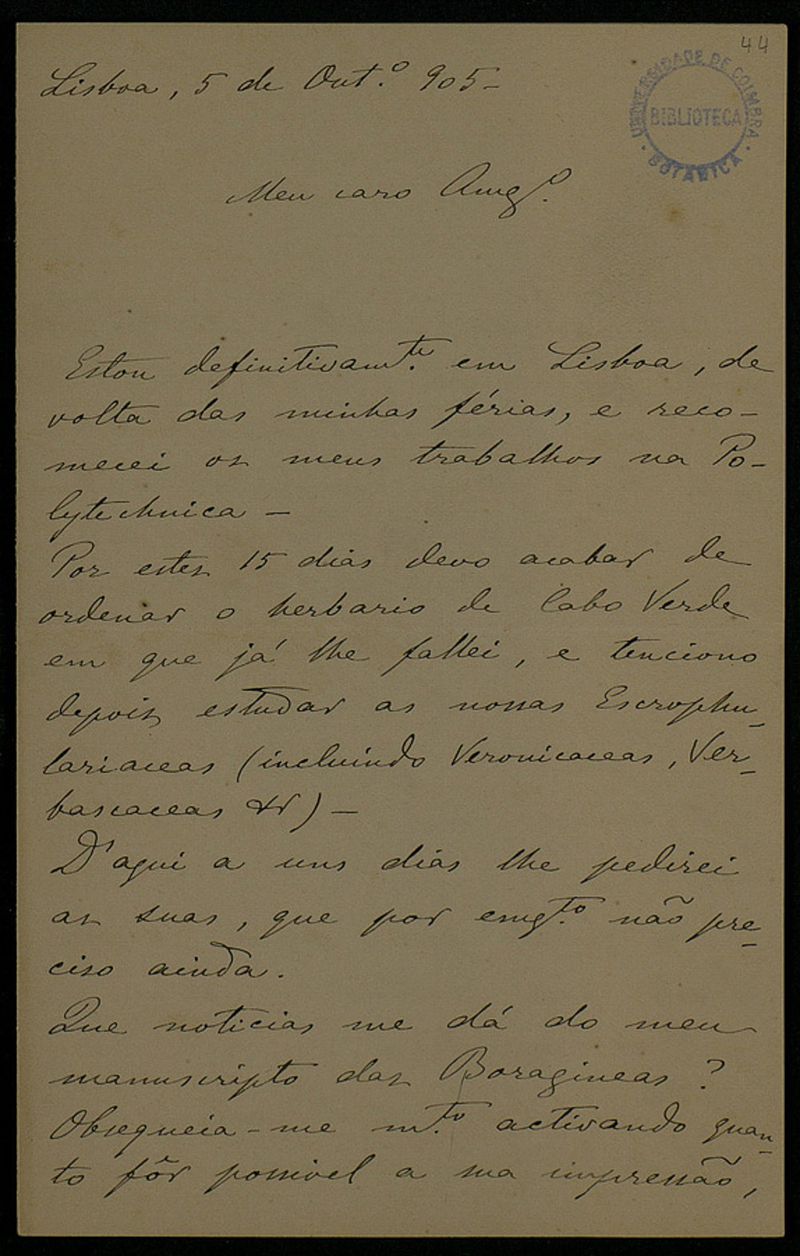 44
UNIVERSIDADE DE COIMBRA
BIBLIOTECA
BOTANICA
Lisboa, 5 de Out.º 905-
Meu caro Amgº.
Estou definitivamte. em Lisboa, de
volta das minhas férias, e reco-
mecei os meus trabalhos na Po-
lytechnica -
Por estes 15 dias devo acabar de
ordenar o herbario de Cabo Verde
em que já lhe fallei, e tenciono
depois estudar as nossas Escrophu-
lariaceas (incluindo Veronicaceas, Ver-
bascaceas &) -
D'aqui a uns dias lhe pedirei
as suas, que por emqto. não pre-
ciso ainda.
Que noticias me dá do meu
manuscripto das Boragineas?
Obsequeia-me mto. activando quan-
to fôr possivel a sua impressão,